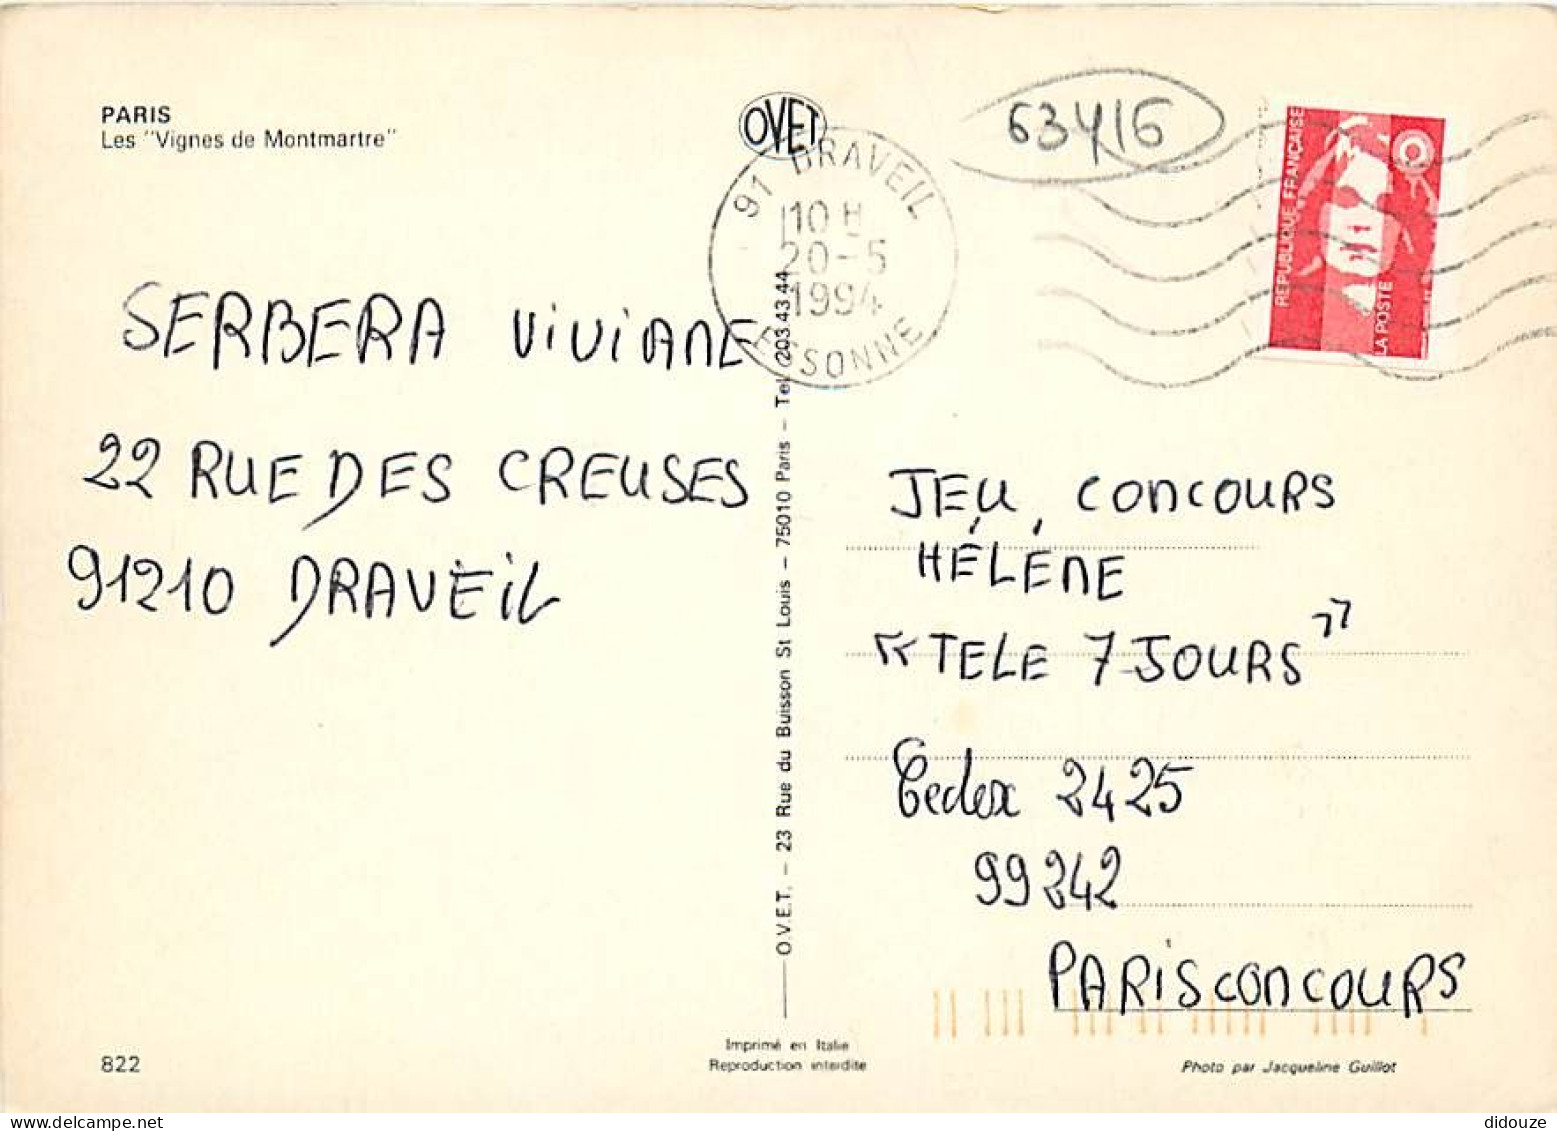 PARIS
Les "Vignes de Montmartre"
OVET
63416
91 DRAVEIL
10 H
20-5
1994
ESSONNE
REPUBLIQUE FRANÇAISE
LA POSTE
SERBERA ViViANE
22 RUE DES CREUSES
91210 DRAVEiL
O.V.E.T. – 23 Rue du Buisson St Louis – 75010 Paris – Tel. 203 43 44
JEU, CONCOURS
HÉLÉNE
« TELE 7 JOURS »
Cedex 2425
99242
PARiS CONCOURS
822
Imprimé en Italie
Reproduction interdite
Photo par Jacqueline Guillot
didouze